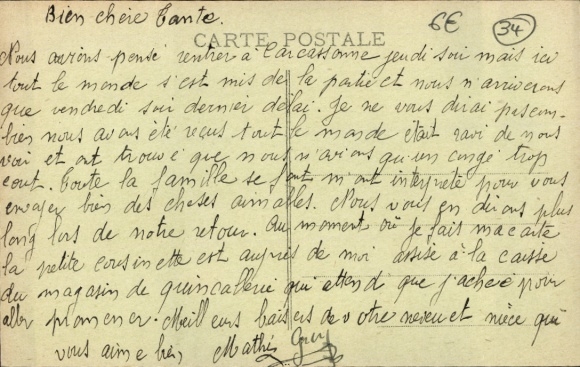 Bien chère Tante.
6€
34
CARTE POSTALE
Nous avions pensé rentrer à Carcassonne jeudi soir mais ici
tout le monde s'est mis de la partie et nous n'arriverons
que vendredi soir dernier délai. Je ne vous dirai pas com-
bien nous avons été reçus tout le monde était ravi de nous
voir et ont trouvé que nous n'avions qu'un congé trop
court. Toute la famille se font m'ont interprété pour vous
envoyer bien des choses aimables. Nous vous en dirons plus
long lors de notre retour. Au moment où je fais ma carte
la petite cousinette est auprès de moi assise à la caisse
du magasin de quincallerie qui attend que j'achève pour
aller promener. Meilleurs baisers de votre neveu et nièce qui
vous aime bien Mathé Guy